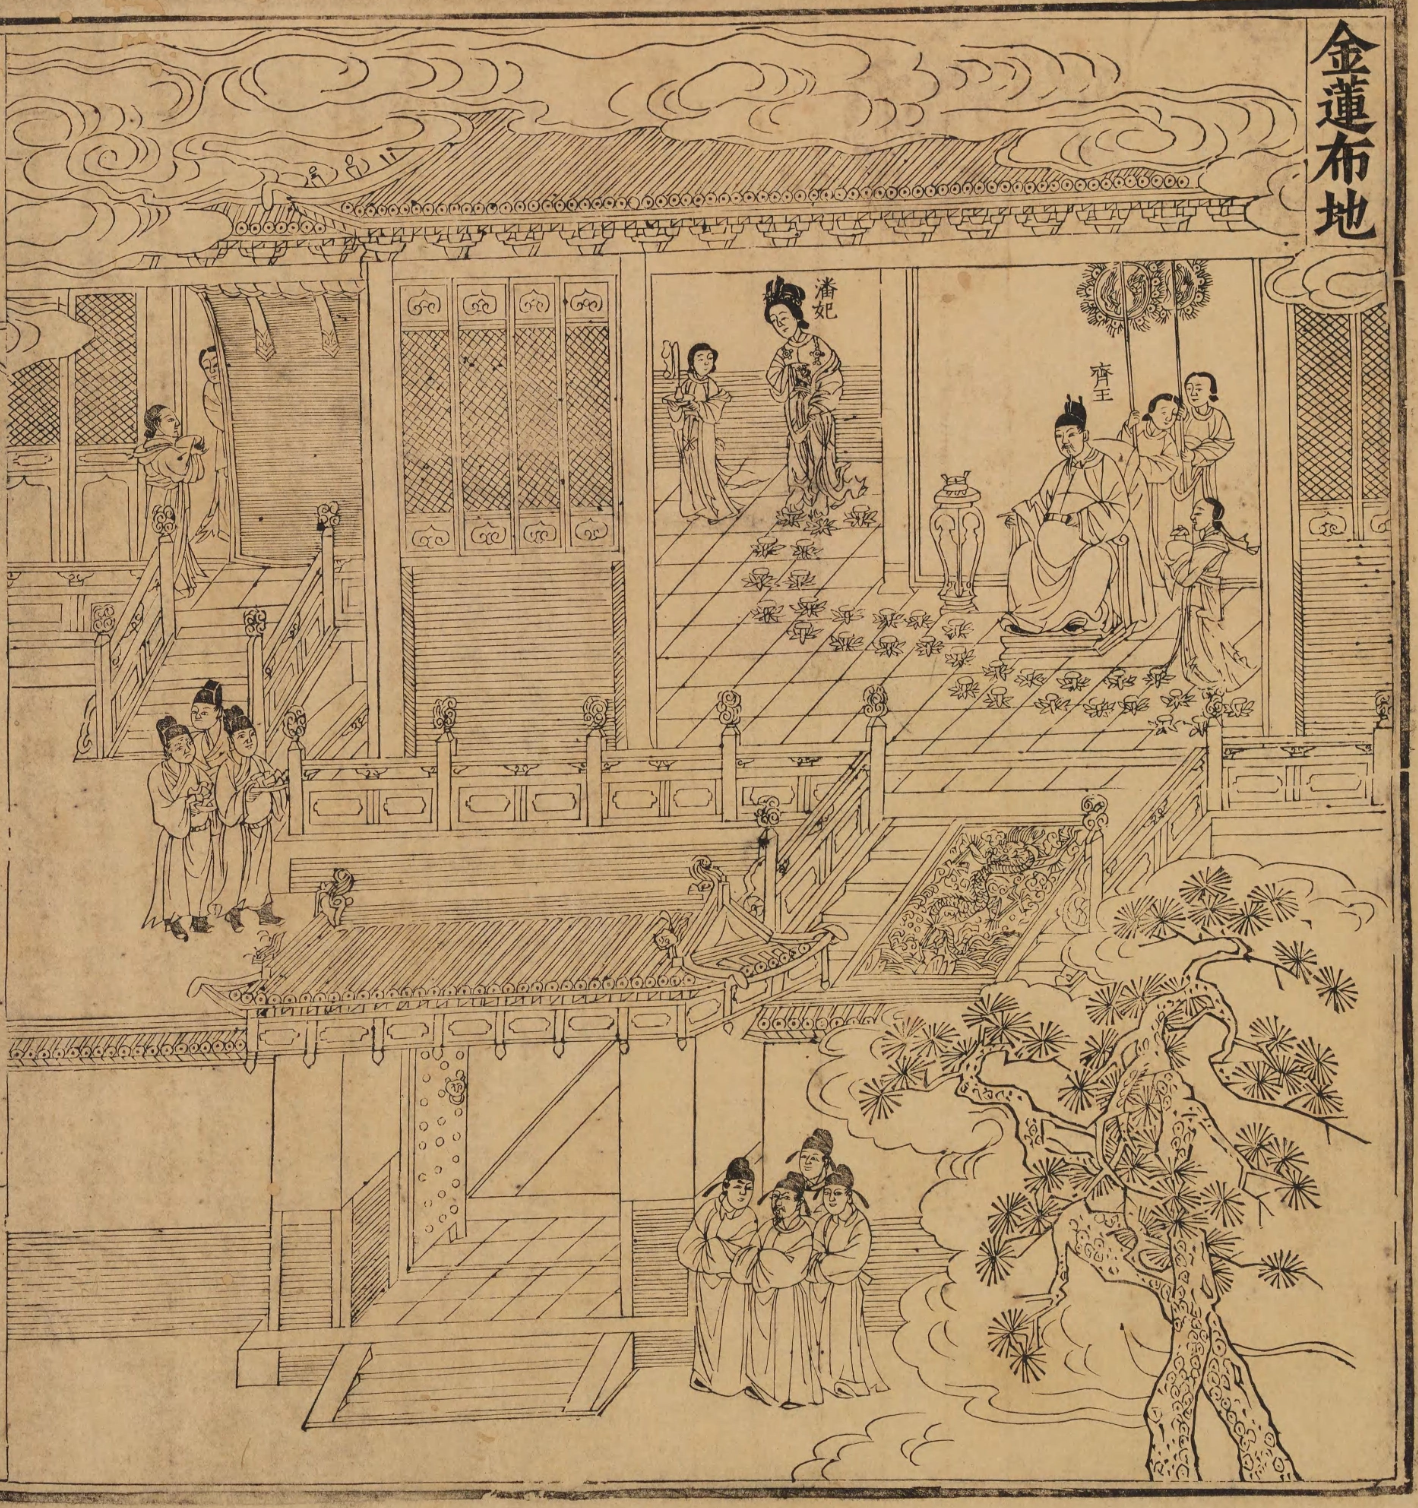 金蓮布地
齊王
潘妃